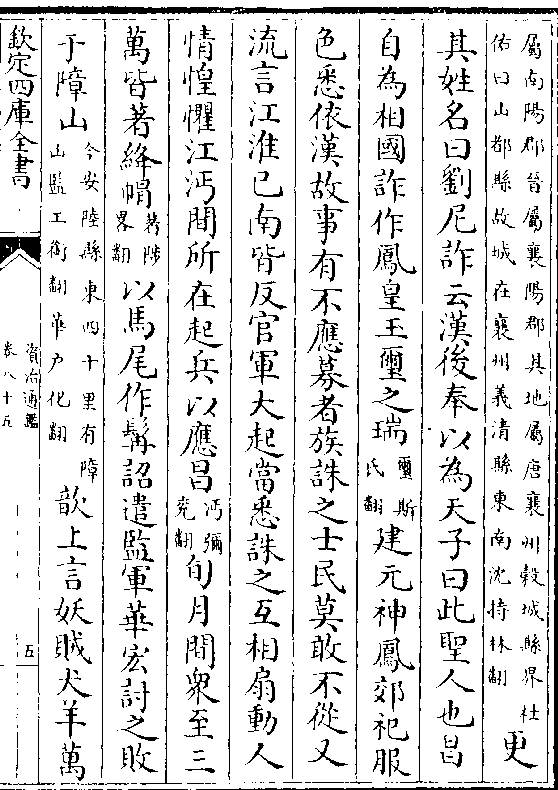 屬南陽郡晉屬襄陽郡其地屬唐襄州穀城縣界杜
佑曰山都縣故城在襄州義清縣東南沈持林翻
更
其姓名曰劉尼詐云漢後奉以為天子曰此聖人也昌
自為相國詐作鳳皇玉璽之瑞璽斯氏翻建元神鳳郊祀服
色悉依漢故事有不應募者族誅之士民莫敢不從又
流言江淮已南皆反官軍大起當悉誅之互相扇動人
情惶懼江沔間所在起兵以應昌沔彌兖翻旬月間衆至三
萬皆著絳帽著陟畧翻以馬尾作髯詔遣監軍華宏討之敗
于障山今安陸縣東四十里有障山監工銜翻華户化翻歆上言妖賊犬羊萬
欽定四庫全書
資治通鑑
卷八十五
五